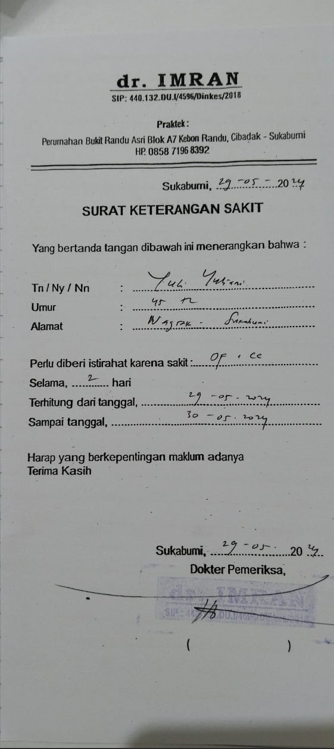 dr. IMRAN
SIP: 440.132.DU.I/4596/Dinkes/2018
Praktek :
Perumahan Bukit Randu Asri Blok A7 Kebon Randu, Cibadak - Sukabumi
HP. 0858 7196 8392
Sukabumi, 29-05-2024
SURAT KETERANGAN SAKIT
Yang bertanda tangan dibawah ini menerangkan bahwa :
Tn / Ny / Nn : Yuli Yuliani
Umur : 45 th
Alamat : Nagrak - Sukabumi
Perlu diberi istirahat karena sakit : OF + CC
Selama, 2 hari
Terhitung dari tanggal, 29-05-2024
Sampai tanggal, 30-05-2024
Harap yang berkepentingan maklum adanya
Terima Kasih
Sukabumi, 29-05-2024
Dokter Pemeriksa,
( )